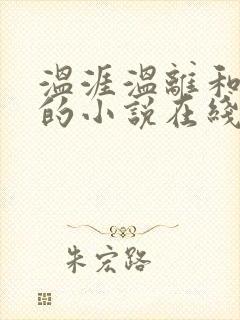 温涯温離和
的小說在綫
朱宏路